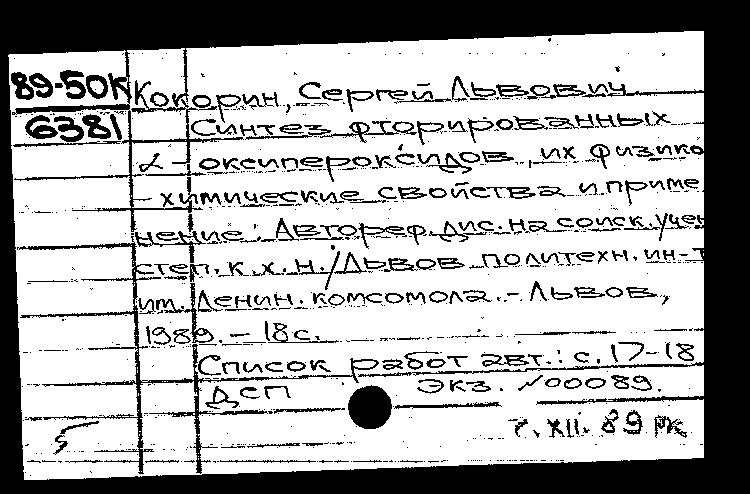 89-50К Кокорин, Сергей Львович
6381 Синтез фторированных
α-оксипероксидов, их физико
-химические свойства и приме
нение: Автореф. дис. на соиск. учен
степ. к.х.н./Львов. политехн. ин-т
им. Ленин. комсомола.-Львов,
1989.-18с.
Список работ авт.: с.17-18
ДСП Экз. №00089.
5 7.XII.89